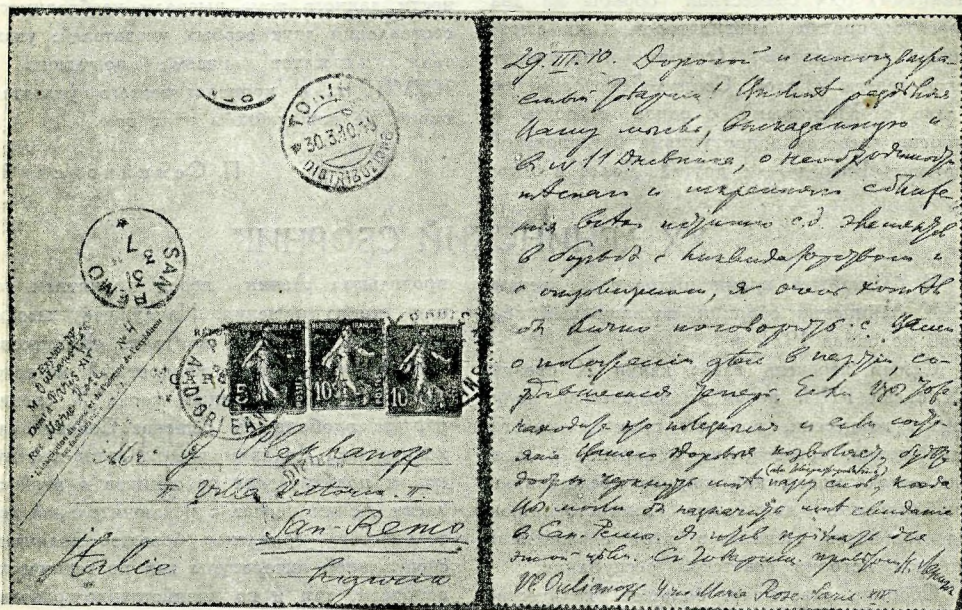 TORINO
30.3.10.19
DISTRIBUZIONE
SAN REMO
31
3
GARE PARIS
D'ORLEANS
5 10 10
Mr. G Plekhanoff
Villa Vittoria.
San-Remo
Italie Liguria
29.III.10. Дорогой и многоуважа-
емый товарищ! Вполнѣ раздѣляя
Вашу мысль, высказанную и
в № 11 Дневника, о необходимости
тѣснаго и искренняго сближе-
ния всѣх истинно с.д. элементов
в борьбѣ с ликвидаторством и
с отзовизмом, я очень хотѣл
бы лично поговорить с Вами
о положении дѣл в партии, со-
здавшемся теперь. Если Вы тоже
находите это полезным и если состо-
яние Вашего здоровья позволяет, будьте
добры черкнуть мнѣ (или телеграфировать) пару слов, когда
Вы могли бы назначить мнѣ свидание
в Сан-Ремо. Я готов приѣхать для
этой цѣли. С товарищ. привѣтом Н. Ленин
Vl. Oulianoff. 4. rue Marie Rose. Paris. XIV